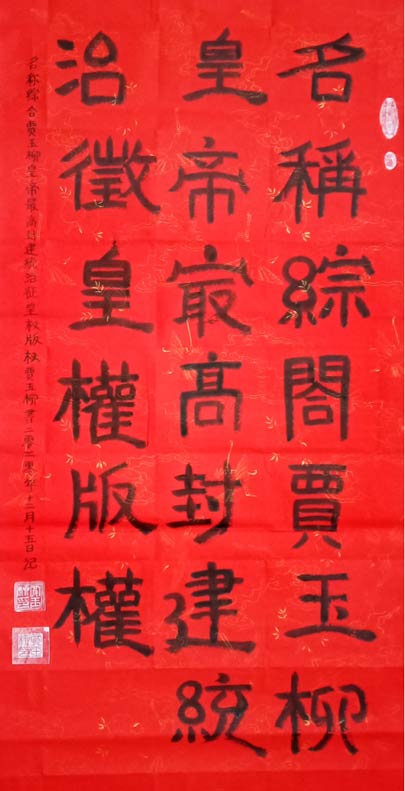 名稱綜閤賈玉柳
皇帝最高封建統
治徵皇權版權
名称综合賈玉柳皇帝最高封建统治征皇权版权賈玉柳書二零二零年十二月十五日记